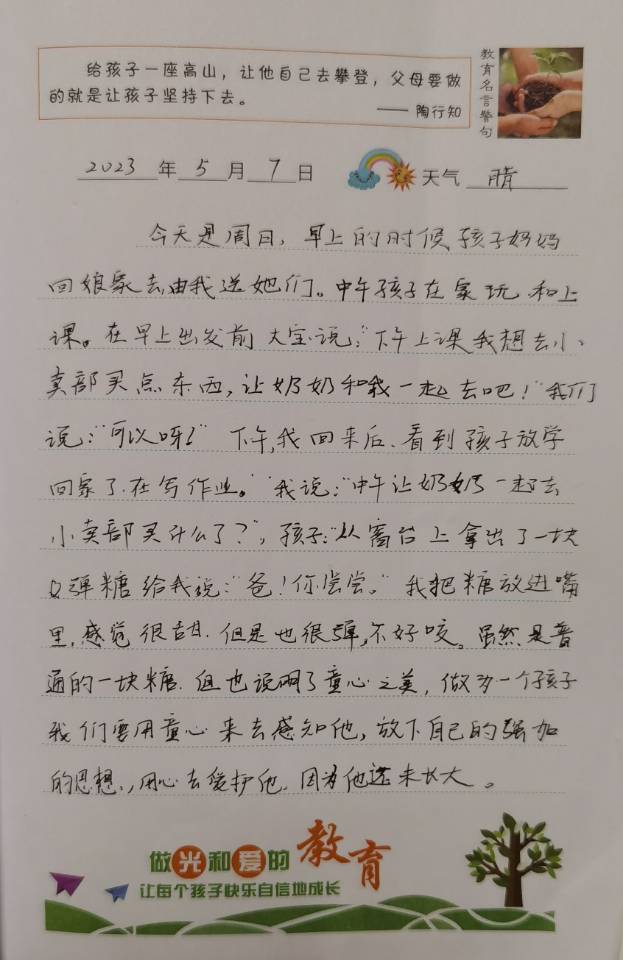 给孩子一座高山，让他自己去攀登，父母要做
的就是让孩子坚持下去。
—— 陶行知
教育名言警句
2023 年 5 月 7 日 天气 晴
今天是周日，早上的时候孩子奶妈
回娘家去，由我送她们。中午孩子在家玩和上
课。在早上出发前大宝说：“下午上课我想去小
卖部买点东西，让奶奶和我一起去吧！”我们
说：“可以呀！”下午，我回来后，看到孩子放学
回家了，在写作业。“我说：“中午让奶奶一起去
小卖部买什么了？”，孩子：“从窗台上拿出了一块
Q弹糖给我说：“爸！你尝尝。”我把糖放进嘴
里，感觉很甜．但是也很弹，不好咬。虽然是普
通的一块糖．但也说明了童心之美，做为一个孩子
我们要用童心来去感知他，放下自己的强加
的思想，用心去爱护他．因为他还未长大。
做光和爱的教育
让每个孩子快乐自信地成长